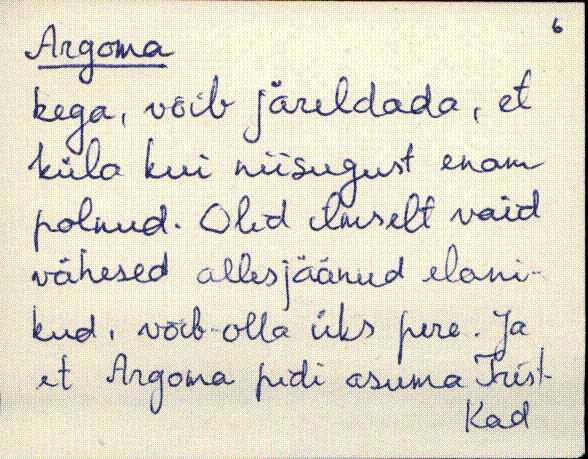 6
Argoma
kega, võib järeldada, et
küla kui niisugust enam
polnud. Olid ilmselt vaid
vähesed allesjäänud elani-
kud, võib-olla üks pere. Ja
et Argoma pidi asuma Trist-
Kad